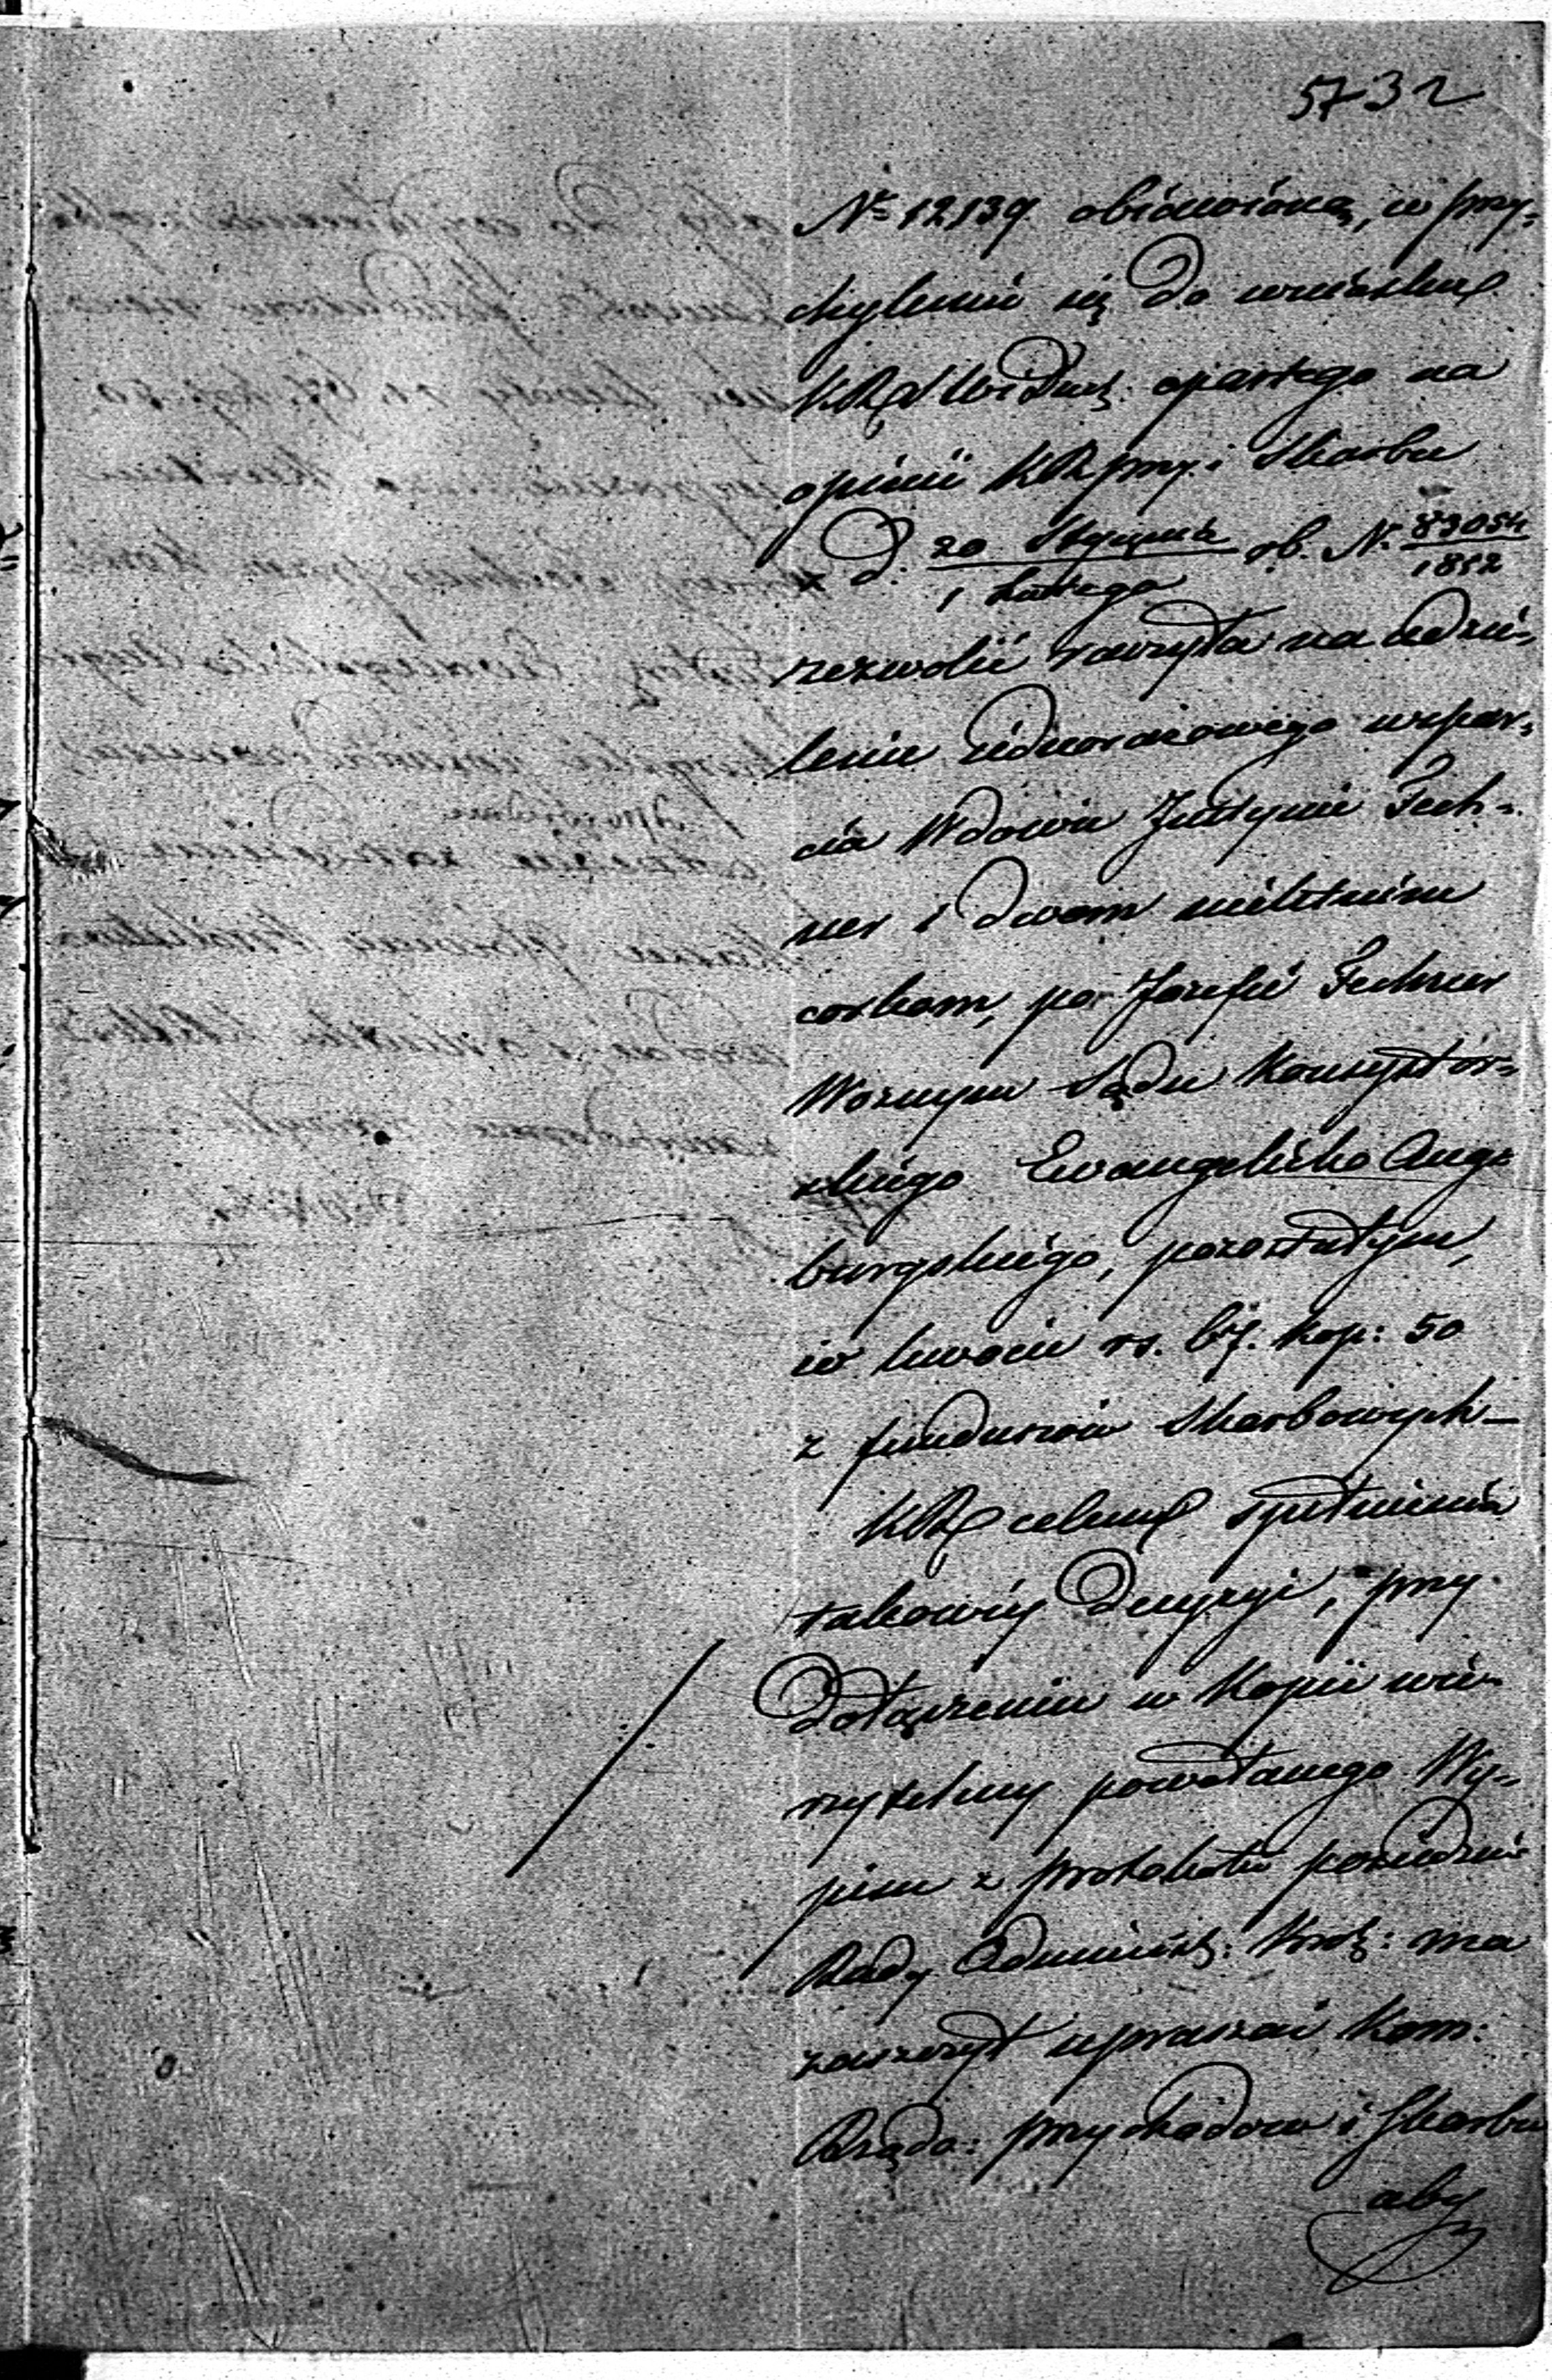 5732
Nº 12139 objawioną, w przy-
chyleniu się do wniosku
KRSWiDuch: opartego na
opinii KRPrzy: i Skarbu
z d: 20 Stycznia / 1 Lutego rb. N. 83054/1852
zezwolić raczyła na udzie-
lenie jednorazowego wspar-
cia Wdowie Justynie Fech-
ner i dwom nieletnim
corkom, po Jozefie Fechner
Woznym Sądu Konsystor-
skiego Ewangelicko Augs
burgskiego, pozostałym,
w kwocie rs. 67. kop: 50
z funduszów Skarbowych –
KR celem spełnienia
takowéy Decyzyi, przy
Dołączeniu w Kopii wie-
rzytelney powołanego Wy-
pisu z protokułu posiedzeń
Rady Administ: Król: ma
zaszczyt upraszać Kom:
Rządo: przychodow i Skarbu
aby